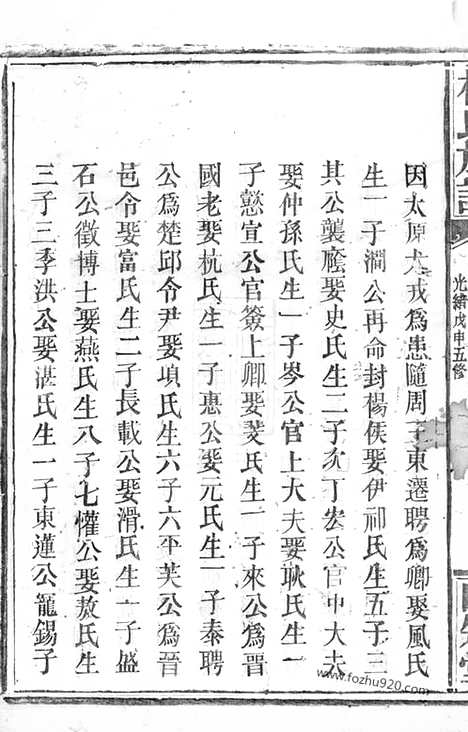 因太原犬戎為患隨周平東遷聘為卿娶風氏
生一子澗公再命封楊侯娶伊祁氏生五子三
其公襲廕娶史氏生二子允丁宏公官中大夫
娶仲孫氏生一子岑公官上大夫娶耿氏生一
子懲宣公官簽上卿娶婓氏生一子來公為晉
國老娶杭氏生一子惠公娶元氏生一子泰聘
公為楚邱令尹娶項氏生六子六平芙公為晉
邑令娶富氏生二子長載公娶滑氏生一子盛
石公徵博士娶燕氏生八子七懽公娶敖氏生
三子三季洪公娶湛氏生一子東蓮公寵錫子
氏族譜
光緒戊申五修
www.fozhu920.com